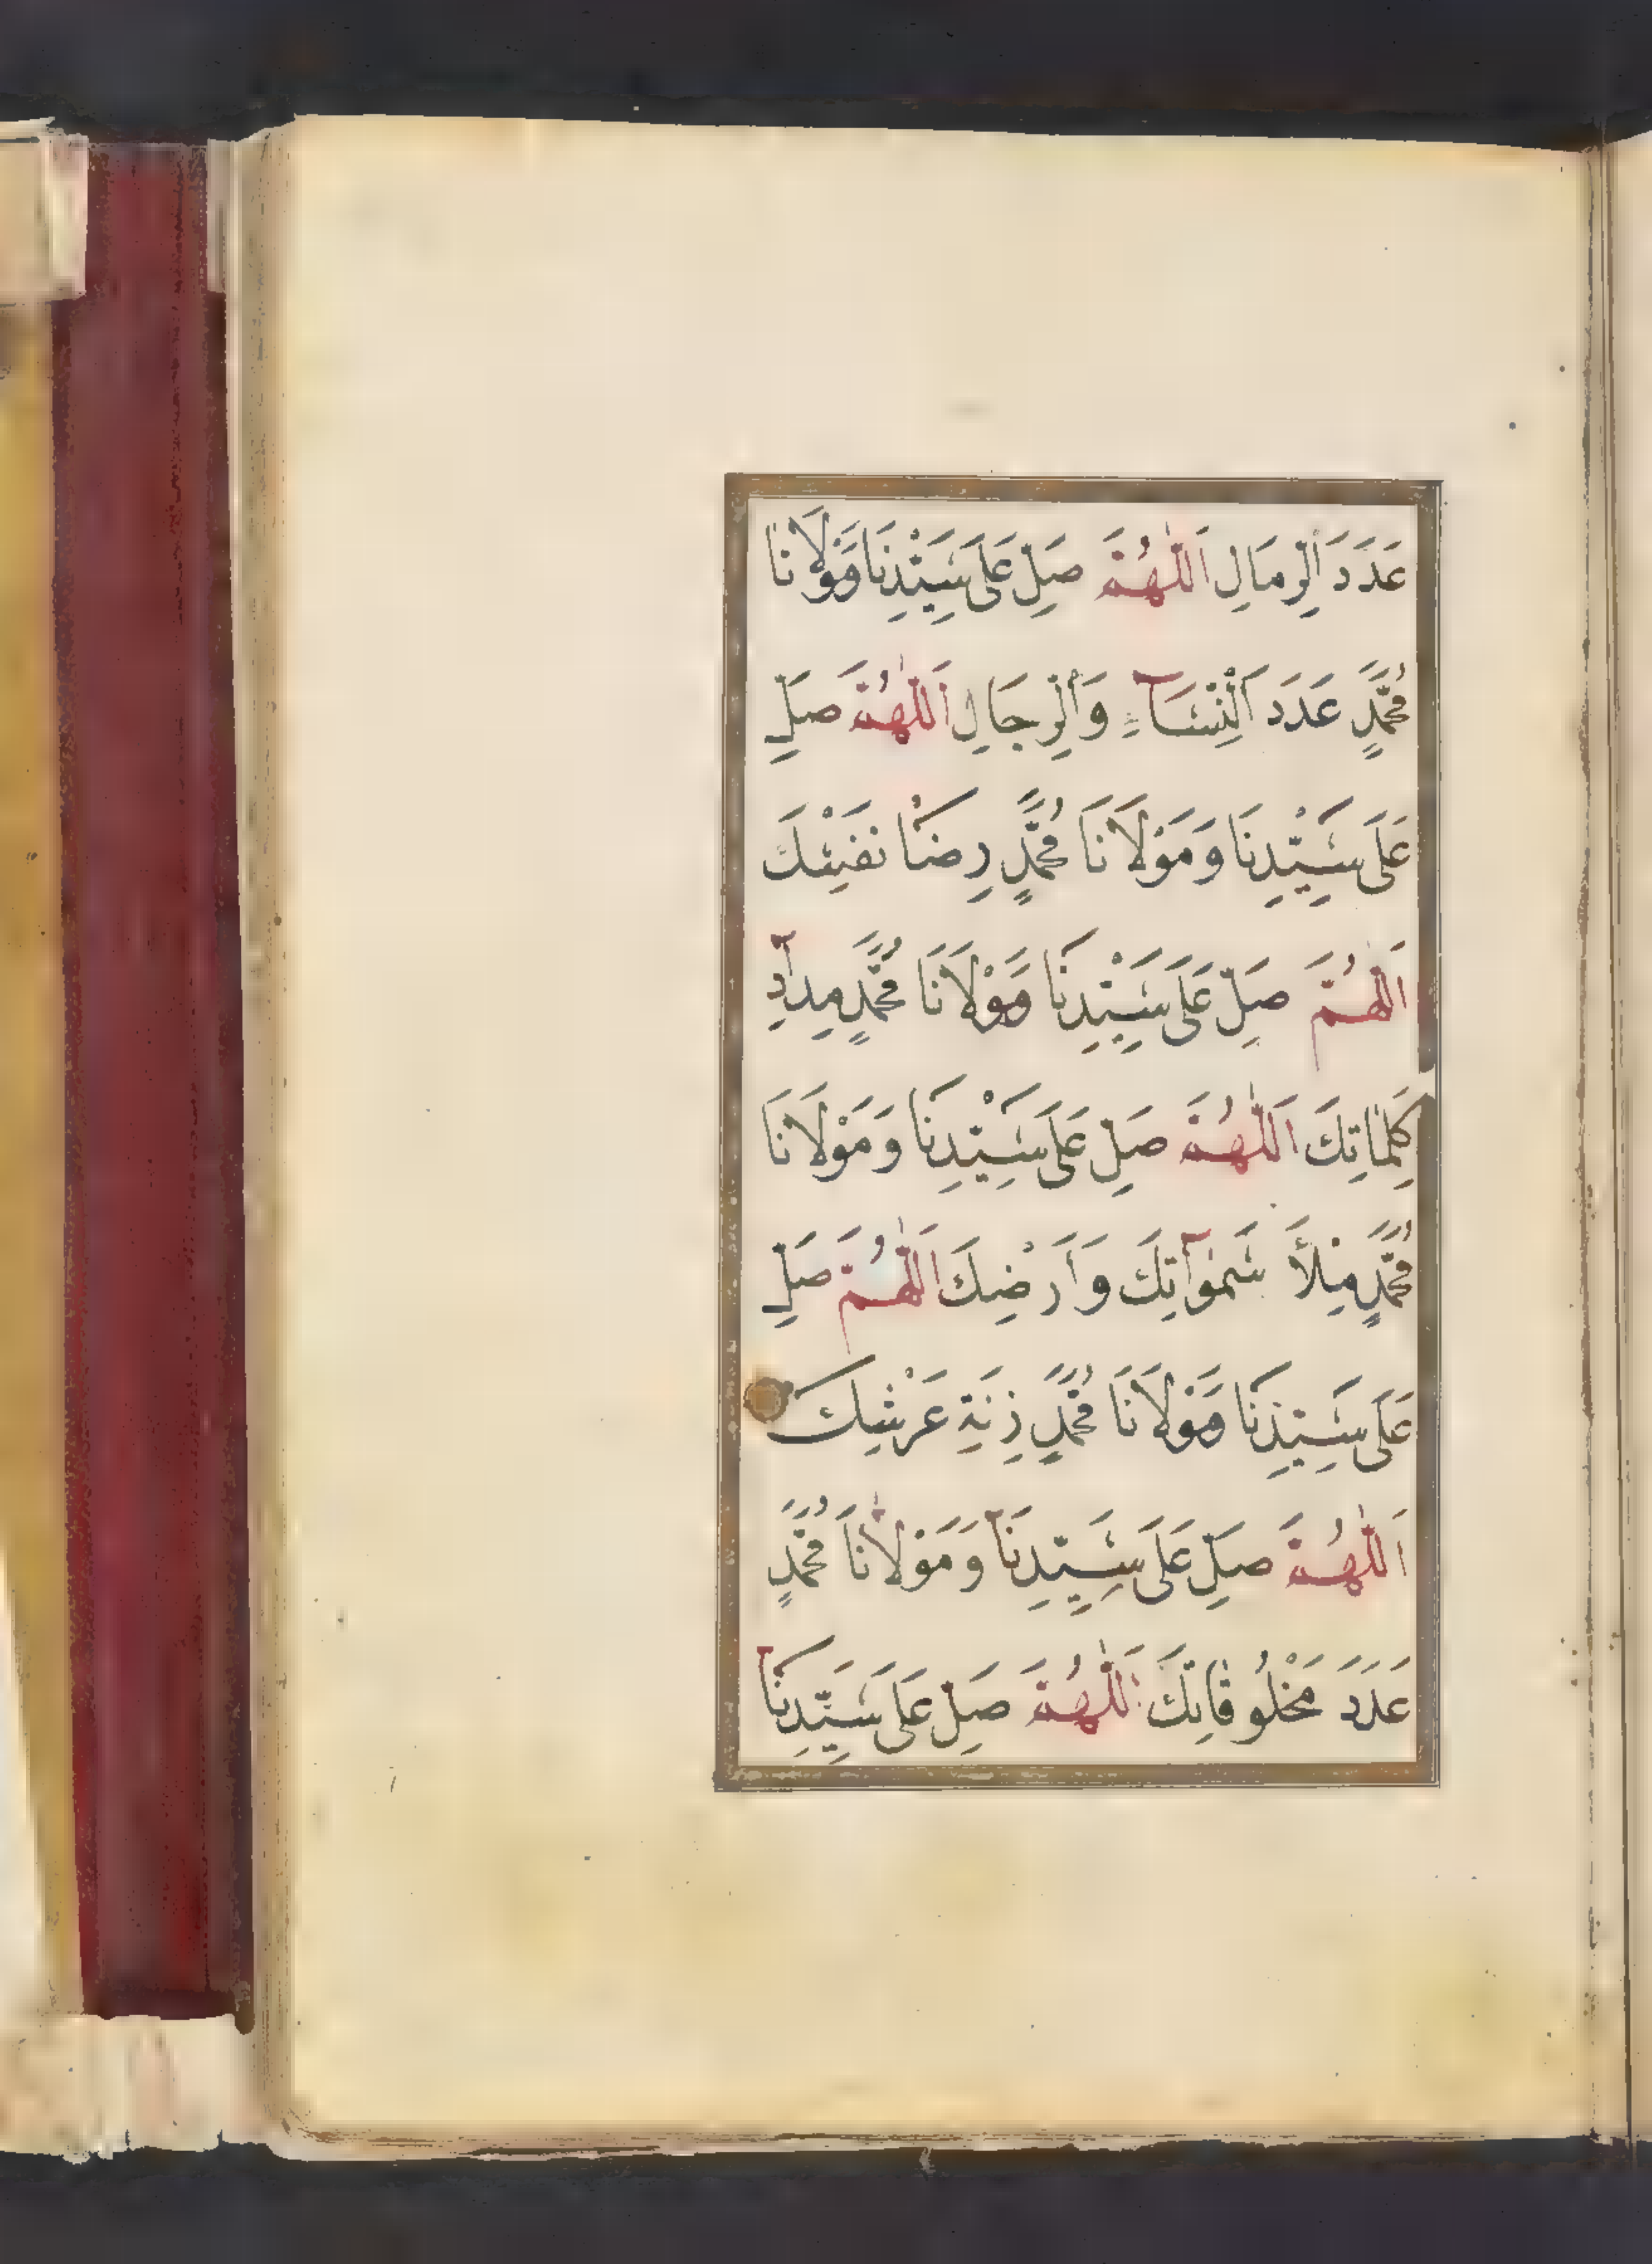 عَدَدَ الرِّمَالِ اَللّٰهُمَّ صَلِّ عَلَى سَيِّدِنَا وَمَوْلَانَا
مُحَمَّدٍ عَدَدَ النِّسَآءِ وَالرِّجَالِ اَللّٰهُمَّ صَلِّ
عَلَى سَيِّدِنَا وَمَوْلَانَا مُحَمَّدٍ رِضَا نَفْسِكَ
اَللّٰهُمَّ صَلِّ عَلَى سَيِّدِنَا وَمَوْلَانَا مُحَمَّدٍ مِدَادَ
كَلِمَاتِكَ اَللّٰهُمَّ صَلِّ عَلَى سَيِّدِنَا وَمَوْلَانَا
مُحَمَّدٍ مِلْأَ سَمٰوَاتِكَ وَأَرْضِكَ اَللّٰهُمَّ صَلِّ
عَلَى سَيِّدِنَا وَمَوْلَانَا مُحَمَّدٍ زِنَةِ عَرْشِكَ
اَللّٰهُمَّ صَلِّ عَلَى سَيِّدِنَا وَمَوْلَانَا مُحَمَّدٍ
عَدَدَ مَخْلُوقَاتِكَ اَللّٰهُمَّ صَلِّ عَلَى سَيِّدِنَا